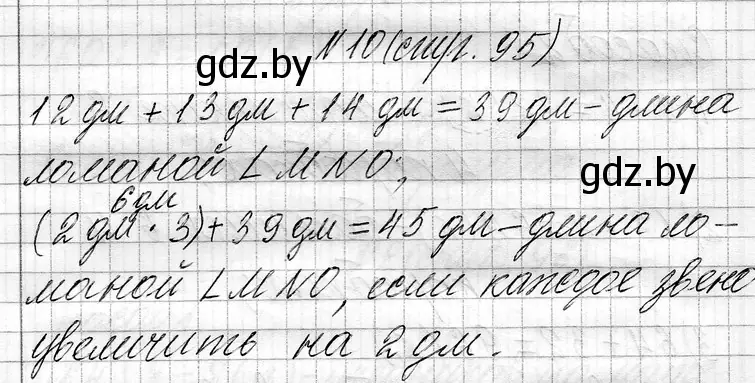 №10 (стр. 95)
gdz.by
12 дм + 13 дм + 14 дм = 39 дм – длина
ломаной LMNO;
gdz.by
6 дм
(2 дм · 3) + 39 дм = 45 дм – длина ло-
маной LMNO, если каждое звено
увеличить на 2 дм.
gdz.by